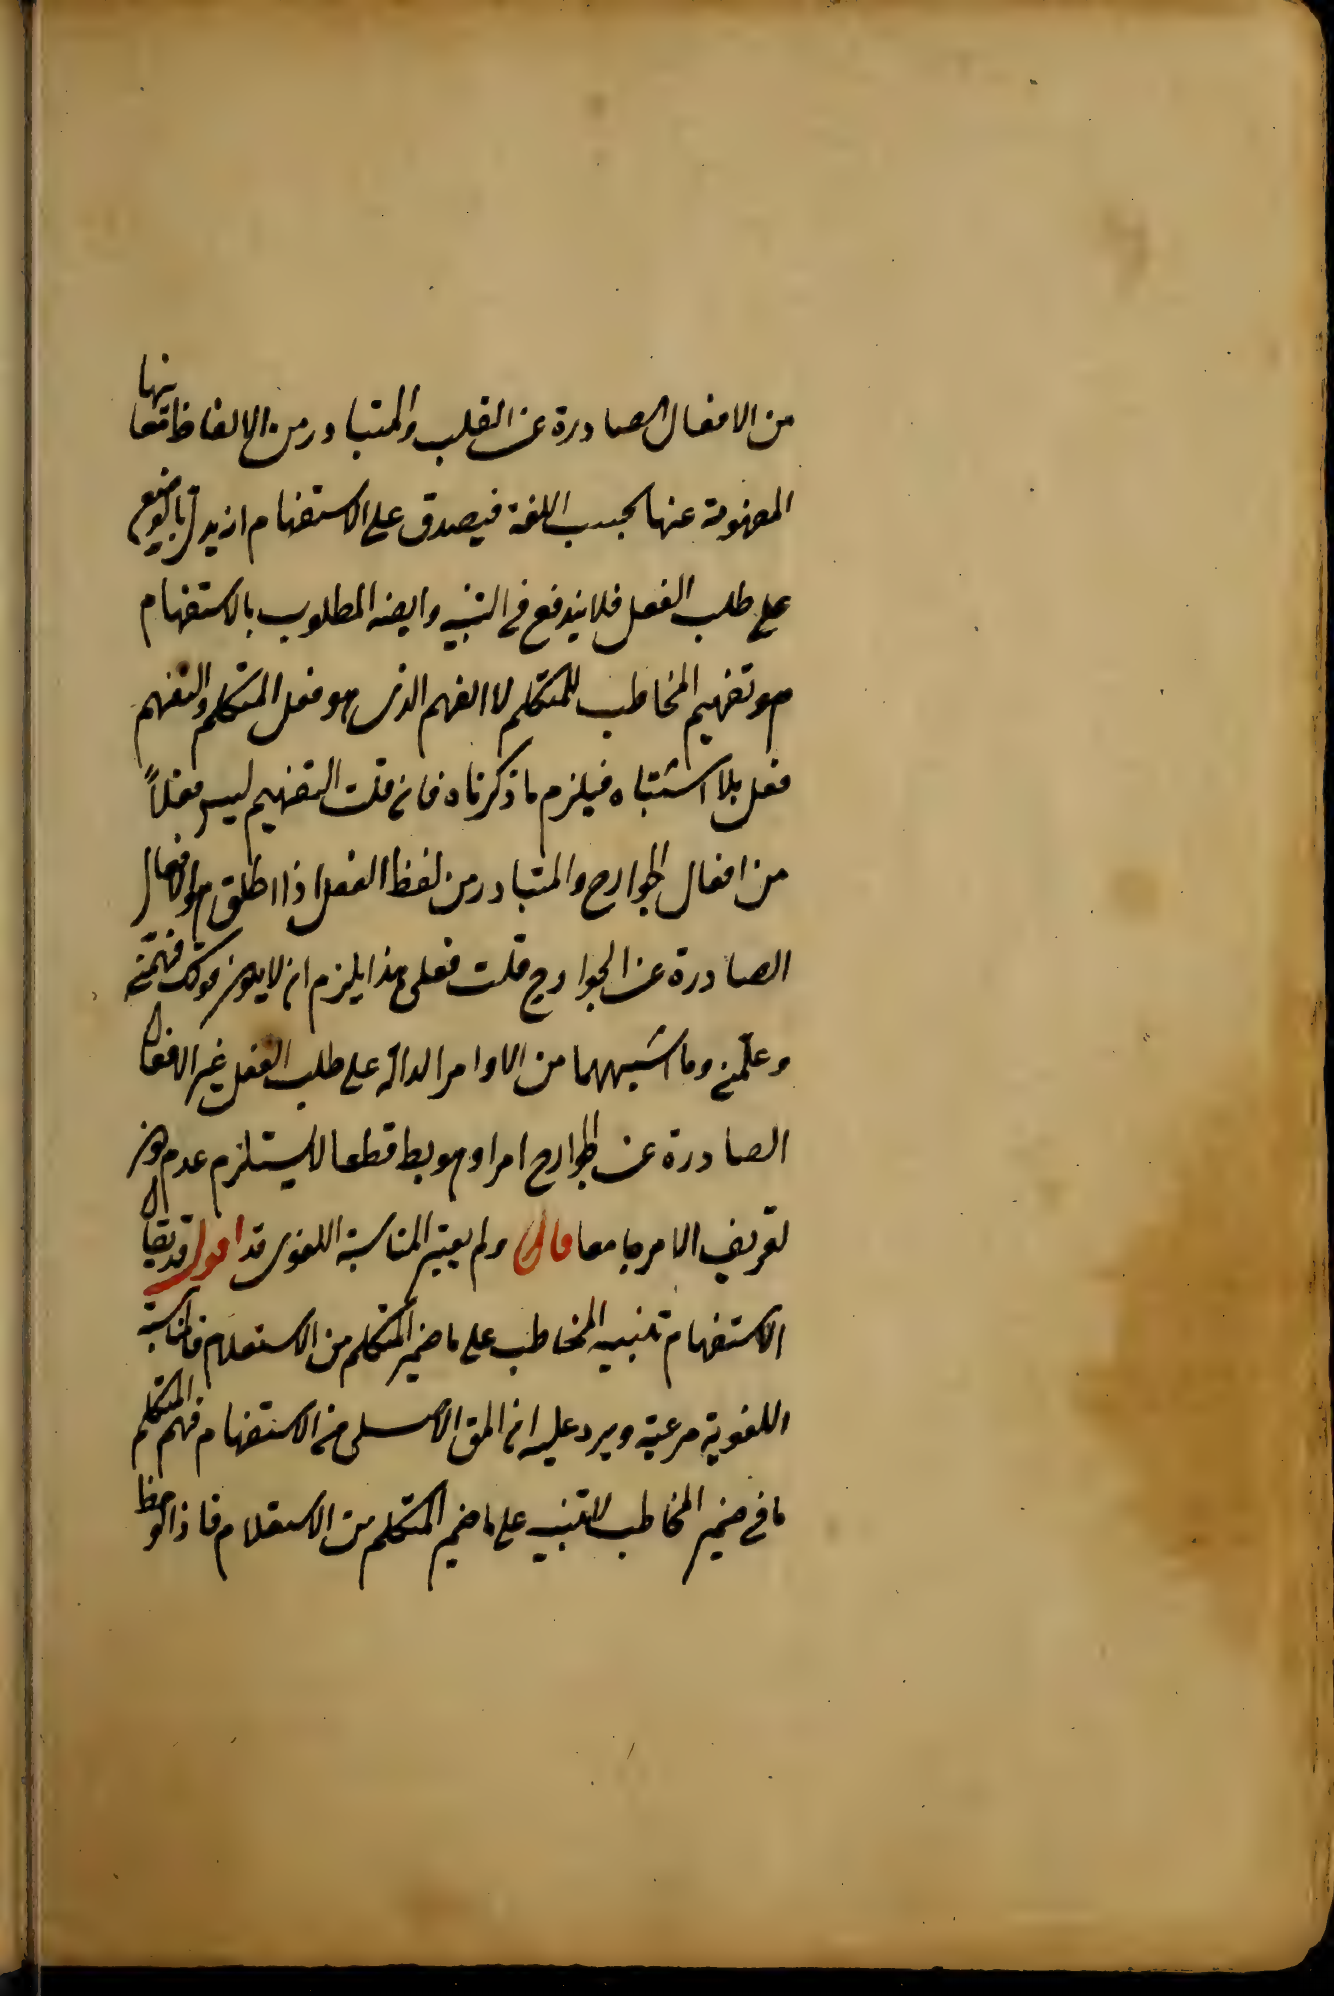 من الافعال الصادرة عن القلب والمتبادر من الالفاظ معانيها
المفهومة عنها بحسب اللغة فيصدق على الاستفهام انه يدل بالوضع
على طلب الفعل فلا يندفع في التنبيه وايضه المطلوب بالاستفهام
هو تفهيم المخاطب للمتكلم لا الفهم الذى هو فعل المتكلم والتفهيم
فعل بلا اشتباه فيلزم ما ذكرناه فان قلت التفهيم ليس فعلاً
من افعال الجوارح والمتبادر من لفظ الفعل اذا اطلق هو الافعال
الصادرة عن الجوارح قلت فعلى هذا يلزم ان لا يكون قولك فهّمنى
وعلّمنى وما اشبههما من الاوامر الدالة على طلب الفعل غير الافعال
الصادرة عن الجوارح امرا وهو بط قطعا لاستلزم عدم كون
تعريف الامر جامعا قال ولم يعتبر المناسبة اللغوى قد اقول قد يقال
الاستفهام تنبيه المخاطب على ما ضمير المتكلم من الاستعلام فالمناسبة
اللغوية مرعية ويرد عليه ان المق الاصلى من الاستفهام فهم المتكلم
ما في ضمير المخاطب لا تنبيه على ما ضمير المتكلم من الاستعلام فاذا لوحظ